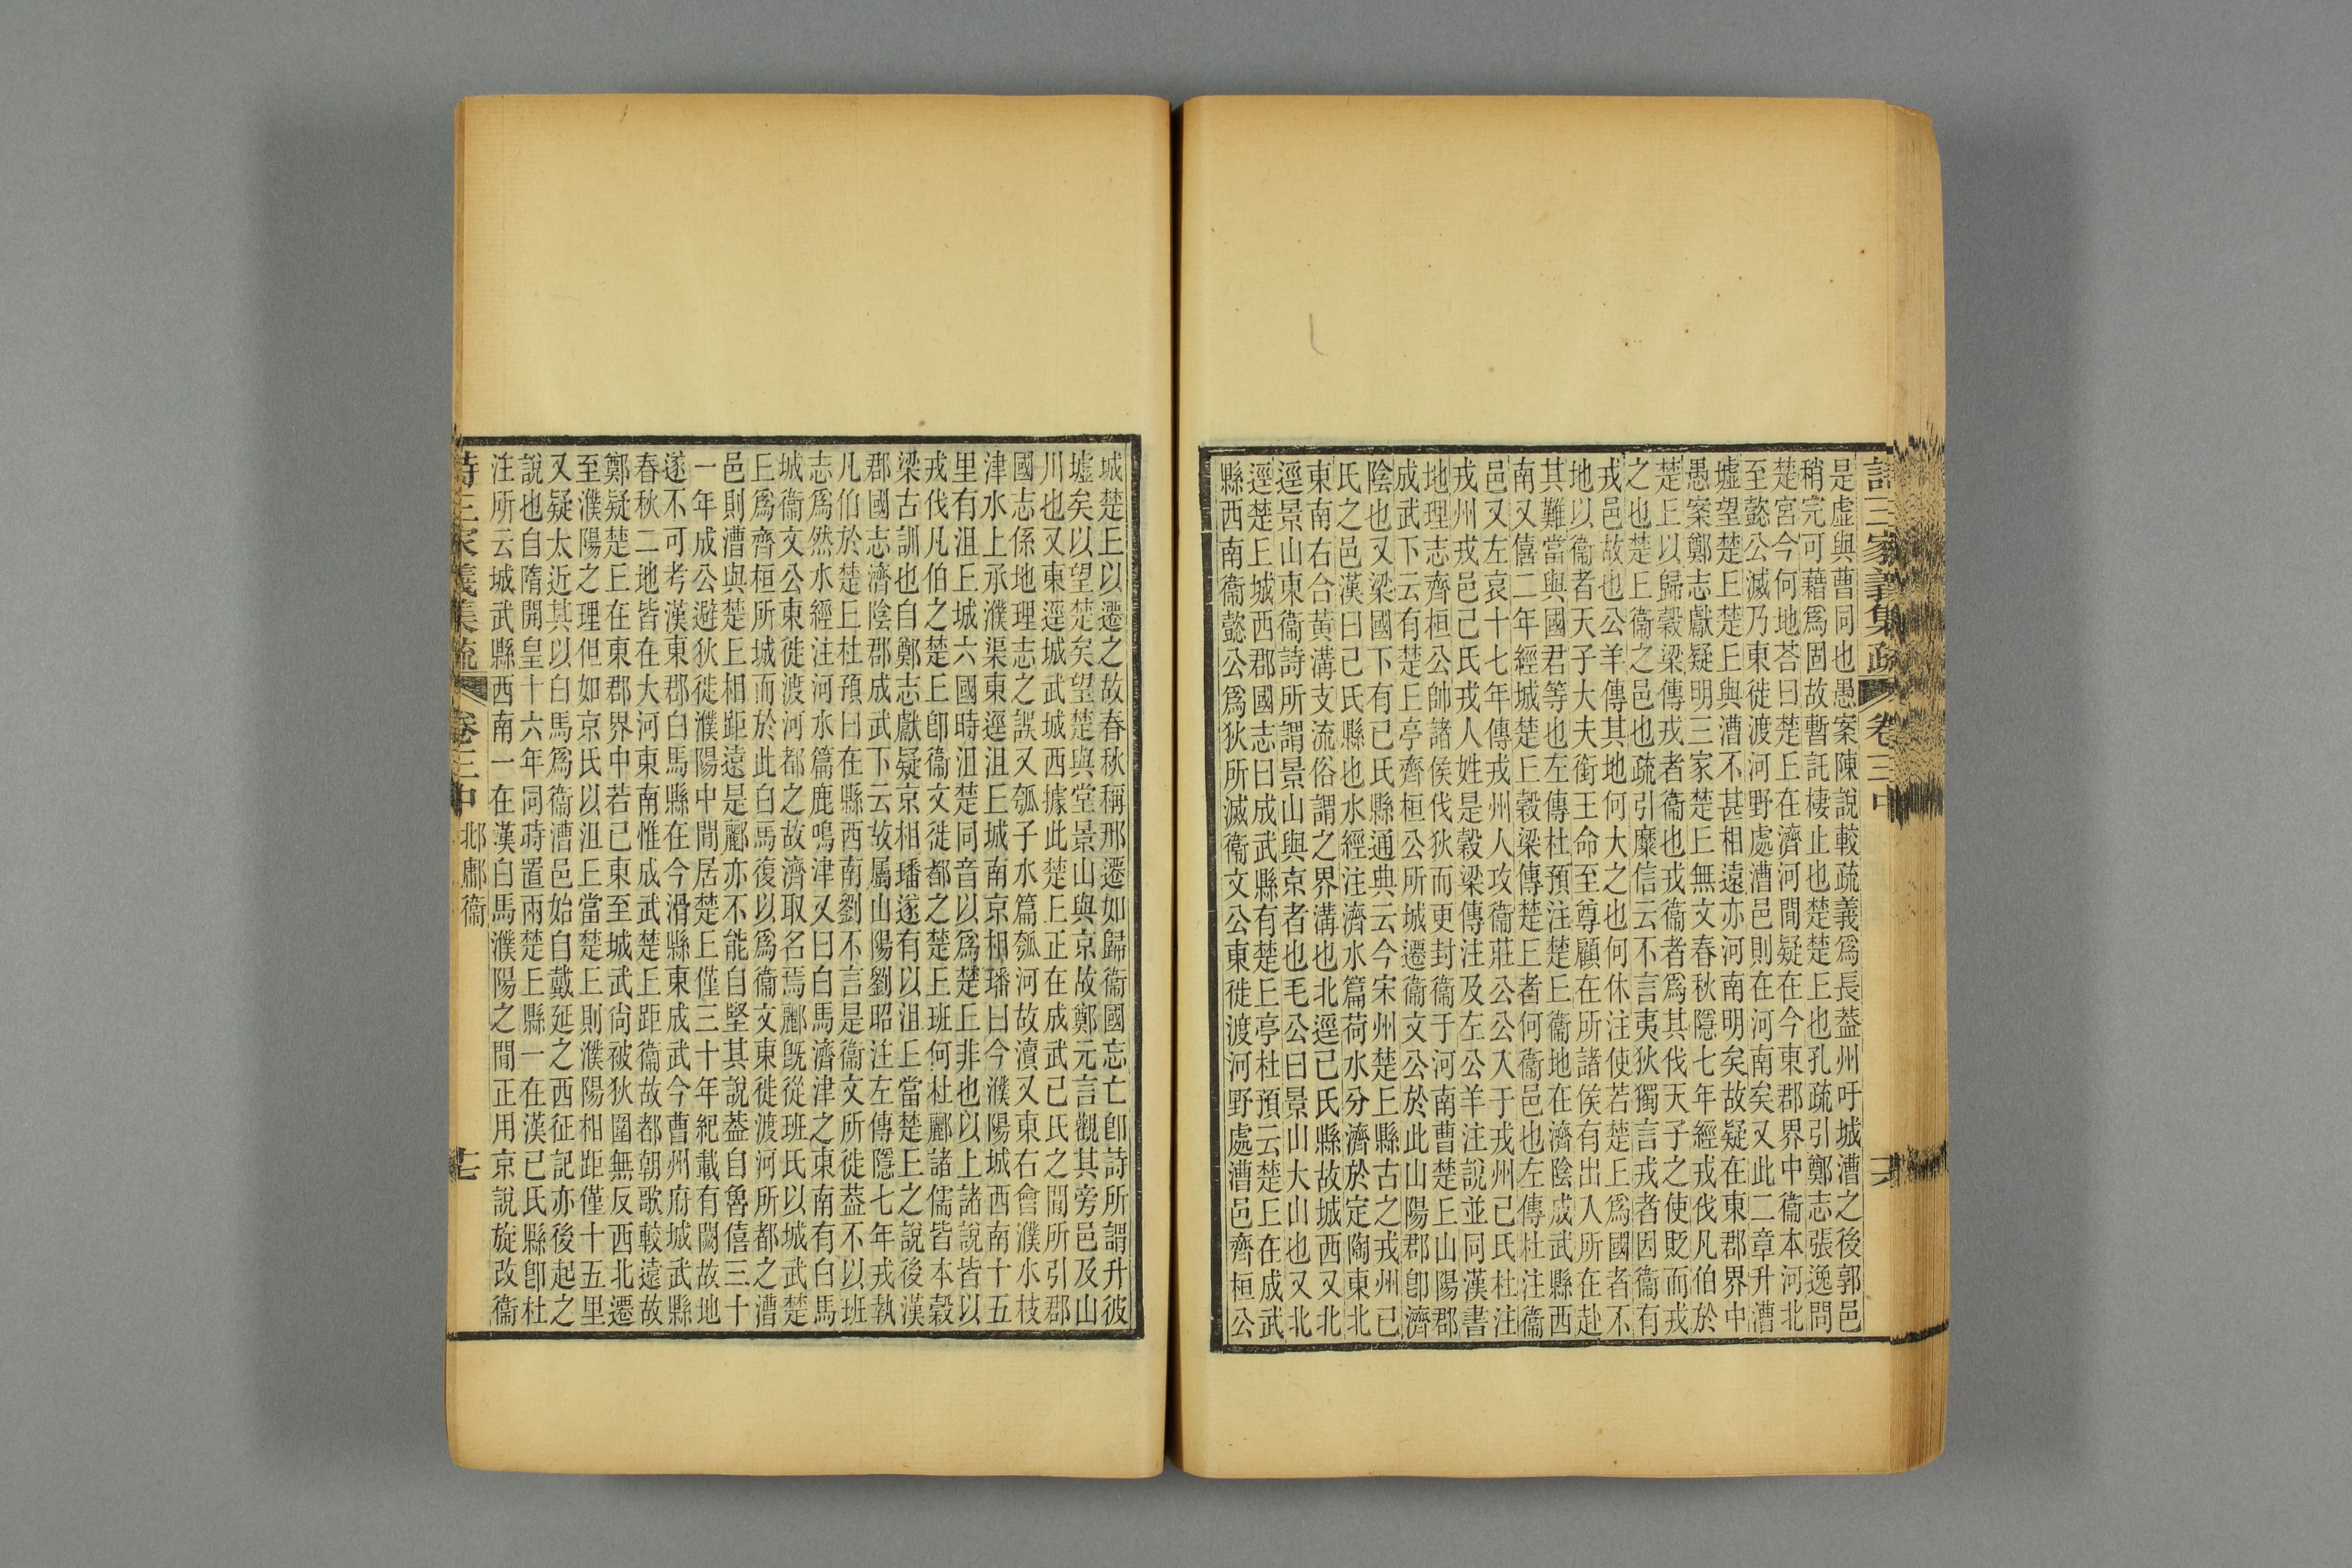 詩三家義集疏
卷三中
是虛與曹同也愚案陳說較疏義爲長葢州吁城漕之後郭邑
稍完可藉爲固故暫託棲止也楚楚𠀌也孔疏引鄭志張逸問
楚宮今何地荅曰楚𠀌在濟河間疑在今東郡界中衞本河北
至懿公滅乃東徙渡河野處漕邑則在河南矣又此二章升漕
墟望楚𠀌楚𠀌與漕不甚相遠亦河南明矣故疑在東郡界中
愚案鄭志獻疑明三家楚𠀌無文春秋隱七年經戎伐凡伯於
楚𠀌以歸穀梁傳戎者衞也戎衞者爲其伐天子之使貶而戎
之也楚𠀌衞之邑也疏引麋信云不言夷狄獨言戎者因衞有
戎邑故也公羊傳其地何大之也何休注使若楚𠀌爲國者不
地以衞者天子大夫銜王命至尊顧在所諸侯有出入所在赴
其難當與國君等也左傳杜預注楚𠀌衞地在濟陰成武縣西
南又僖二年經城楚𠀌穀梁傳楚𠀌者何衞邑也左傳杜注衞
邑又左哀十七年傳戎州人攻衞莊公公入于戎州已氏杜注
戎州戎邑己氏戎人姓是穀梁傳注及左公羊注說並同漢書
地理志齊桓公帥諸侯伐狄而更封衞于河南曹楚𠀌山陽郡
成武下云有楚𠀌亭齊桓公所城遷衞文公於此山陽郡卽濟
陰也又梁國下有已氏縣通典云今宋州楚𠀌縣古之戎州已
氏之邑漢曰己氏縣也水經注濟水篇荷水分濟於定陶東北
東南右合黃溝支流俗謂之界溝也北逕己氏縣故城西又北
逕景山東衞詩所謂景山與京者也毛公曰景山大山也又北
逕楚𠀌城西郡國志曰成武縣有楚𠀌亭杜預云楚𠀌在成武
縣西南衞懿公爲狄所滅衞文公東徙渡河野處漕邑齊桓公
城楚𠀌以遷之故春秋稱邢遷如歸衞國忘亡卽詩所謂升彼
墟矣以望楚矣望楚與堂景山與京故鄭元言觀其旁邑及山
川也又東逕城武城西據此楚𠀌正在成武已氏之間所引郡
國志係地理志之誤又瓠子水篇瓠河故瀆又東右會濮水枝
津水上承濮渠東逕沮𠀌城南京相璠曰今濮陽城西南十五
里有沮𠀌城六國時沮楚同音以爲楚𠀌非也以上諸說皆以
戎伐凡伯之楚𠀌卽衞文徙都之楚𠀌班何杜酈諸儒皆本穀
梁古訓也白鄭志獻疑京相璠遂有以沮𠀌當楚𠀌之說後漢
郡國志濟陰郡成武下云故屬山陽劉昭注左傳隱七年戎執
凡伯於楚𠀌杜預曰在縣西南劉不言是衞文所徙葢不以班
志爲然水經注河水篇鹿鳴津又曰白馬濟津之東南有白馬
城衞文公東徙渡河都之故濟取名焉酈旣從班氏以城武楚
𠀌爲齊桓所城而於此白馬復以爲衞文東徙渡河所都之漕
邑則漕與楚𠀌相距遠是酈亦不能自堅其說葢自魯僖三十
一年成公避狄徙濮陽中閒居楚𠀌僅三十年紀載有闕故地
遂不可考漢東郡白馬縣在今滑縣東成武今曹州府城武縣
春秋二地皆在大河東南惟成武楚𠀌距衞故都朝歌較遠故
鄭疑楚𠀌在東郡界中若已東至城武尙被狄圍無反西北遷
至濮陽之理但如京氏以沮𠀌當楚𠀌則濮陽相距僅十五里
又疑太近其以白馬爲衞漕邑始自戴延之西征記亦後起之
說也自隋開皇十六年同時置兩楚𠀌縣一在漢已氏縣卽杜
注所云城武縣西南一在漢白馬濮陽之閒正用京說旋改衞
詩三家義集疏
卷三中
邶鄘衞